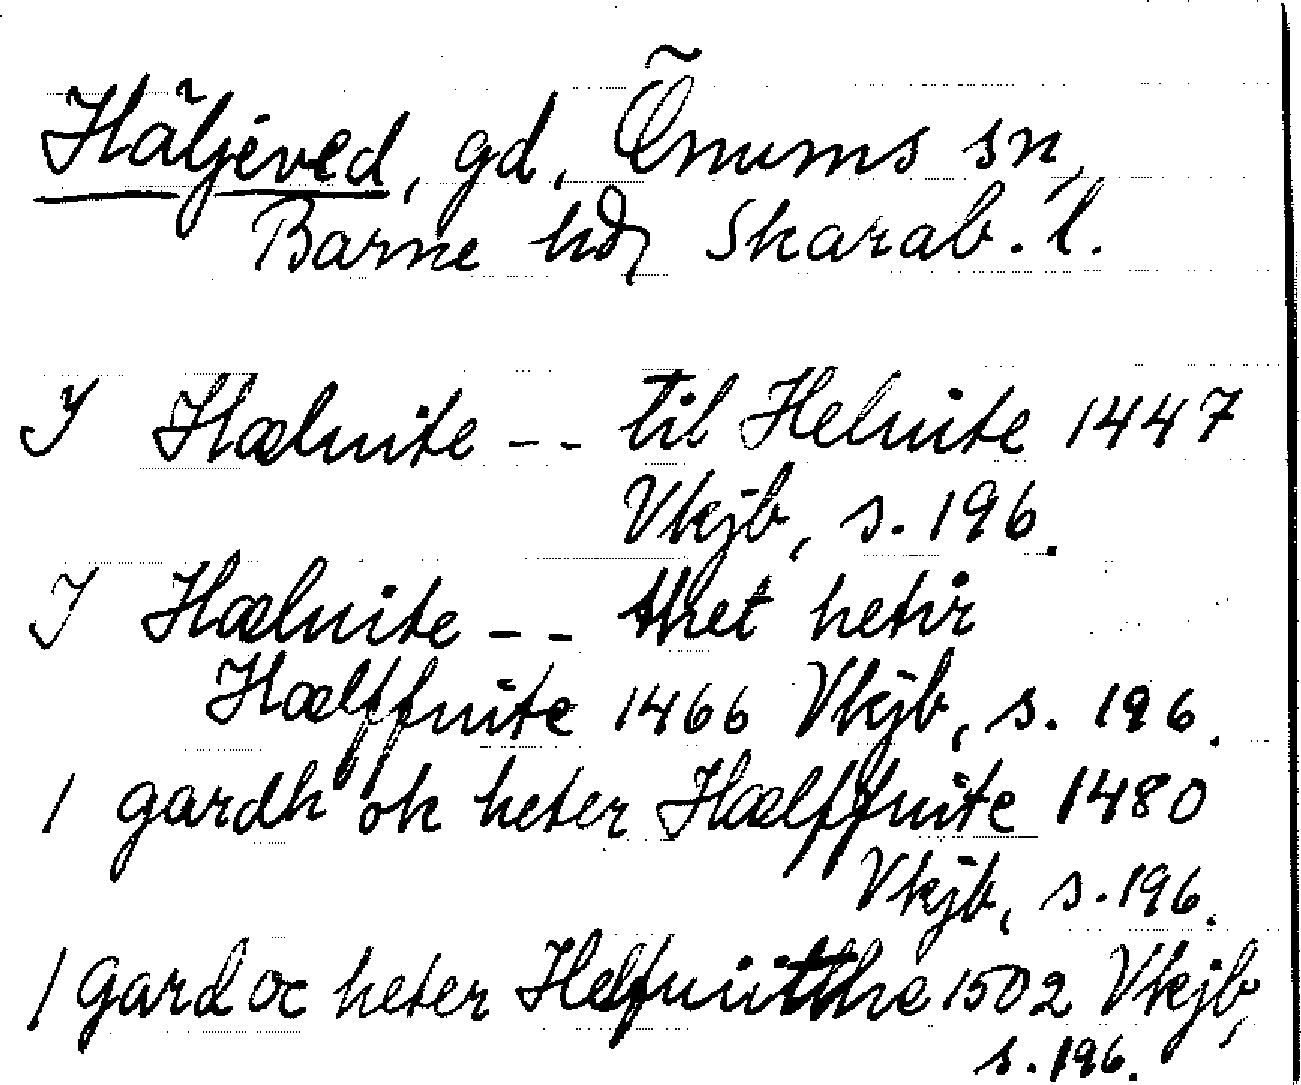 Häljeved, gd, Önums sn,
Barne hd, Skarab. l.
J Hæluite -- til Heluite 1447
Vkjb, s. 196.
J Hæluite -- thet hetir
Hælffuite 1466 Vkjb, s. 196.
1 gardh ok heter Hælffuite 1480
Vkjb, s. 196.
1 gard oc heter Helfuiitthe 1502 Vkjb,
s. 196.